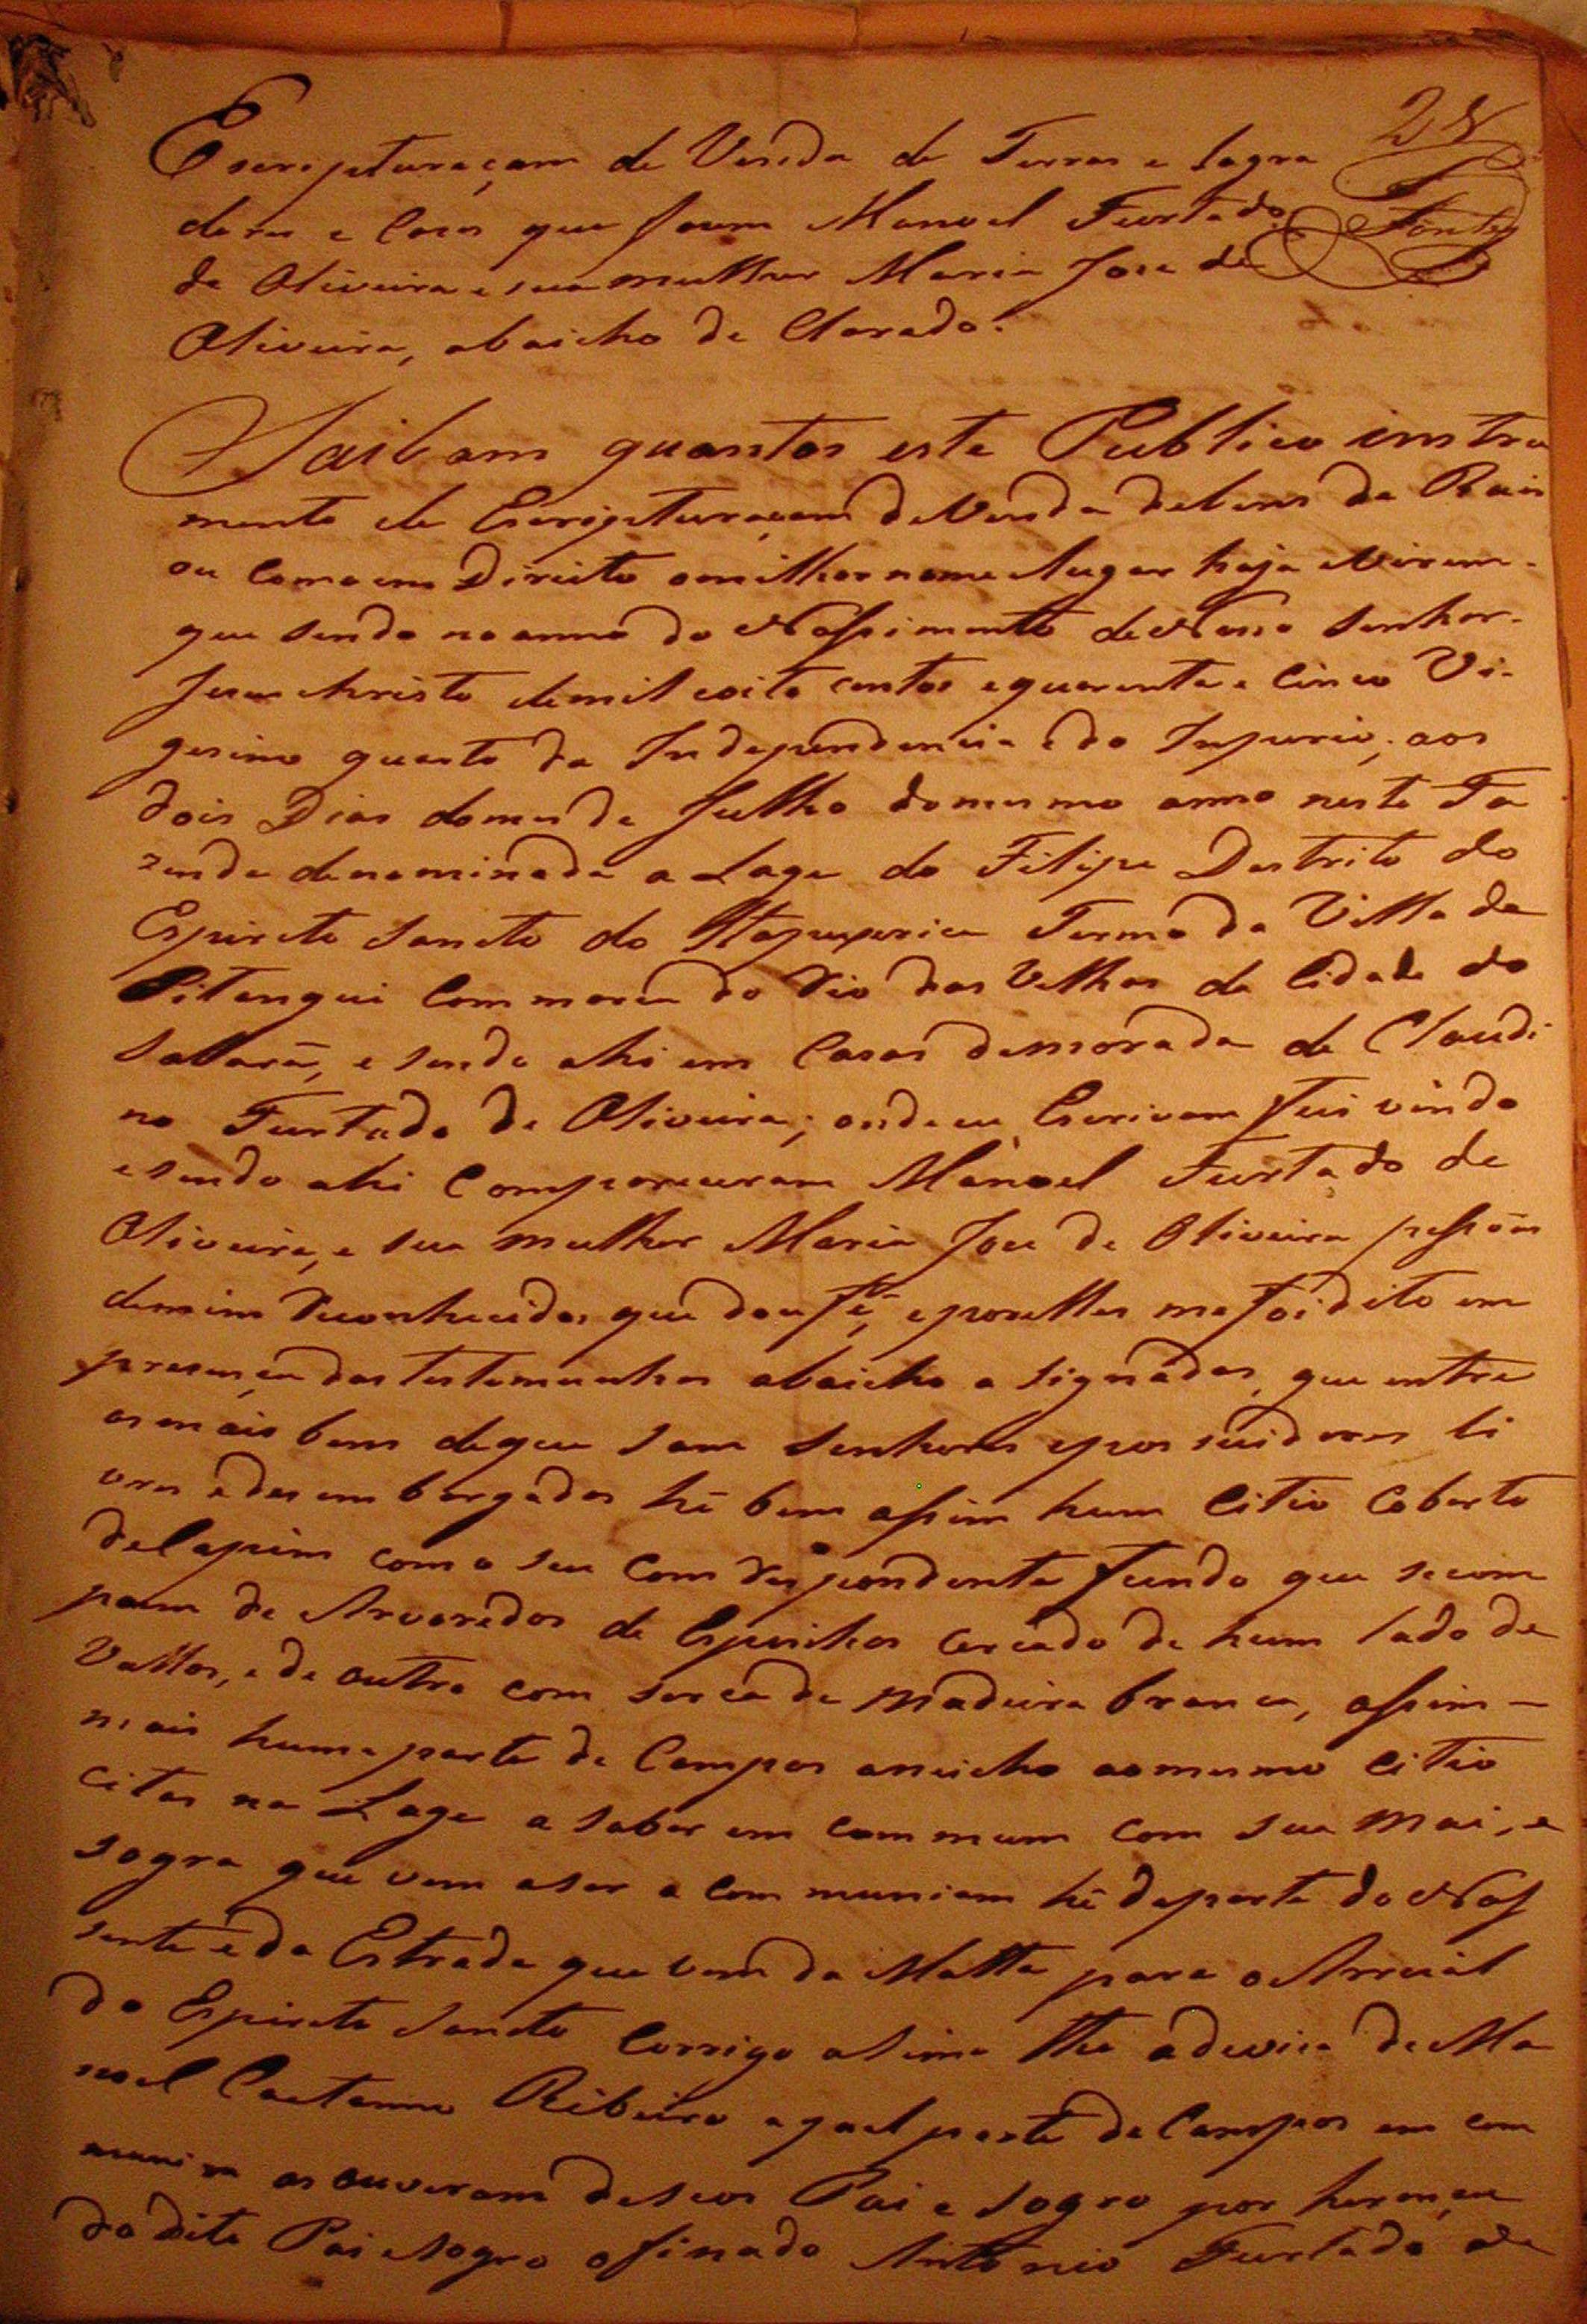 24
Fontes
Escripturaçam de Venda de Terras e Lagra
doras e Casas que fasem Manoel Furtado
de Oliveira e sua mulher Maria Jose de
Oliveira, abaicho de Clarado.
Saibam quantos este Publico instru
mento de Escripturaçam de Venda de bens da Rais
ou como em Direito omilhor nome e lugar haja e Virem.
que sendo no anno do Nassimento de Nosso Senhor
Jesus Christo de mil eoito centos e quarenta e Cinco Vi-
gesimo quarto da Independencia e do Imperio, aos
dois Dias do mes de Julho do mesmo anno nesta Fa
zenda denominada a Lage do Filipe Destrito do
Espirito Santo do Itapeserica Termo da Villa de
Pitangui Commarca do Rio das Velhas da Cidade do
Sabará, e sendo ahi em Casas de morada de Claudi
no Furtado de Oliveira; onde eu Escrivam fui vindo
e sendo ahi Compareceram Manoel Furtado de
Oliveira, e sua mulher Maria Jose de Oliveira pessoas
de mim Reconhecidas que dou fé, e por elles me foi dito em
presença das testemunhas abaicho a signadas, que entre
os mais bens de que sam Senhores e possuidores li
vres e desembargados hé bem assim hum Citio Coberto
de Capim com o seu Com Respondente fundo que se com
poem de Arvoredos de Espinhos cercado de hum lado de
Vallos, e de outro com serca de madeira branca, assim
mais huma parte de Campos aneicho ao mesmo Citio
Citos na Lage a saber em commum com sua Mai, e
sogra que vem a ser a communiam hé da parte do Nas
sente e da Estrada que vem da Matta para o Arraial
do Espirito Santo Corrigo asima the a devisa de Ma
noel Caetanno Ribeiro a qual parte de Campos em com
muniam os ouveram de seos Pai e Sogro por herança
do dito Pai e Sogro o finado Antonio Furtado de